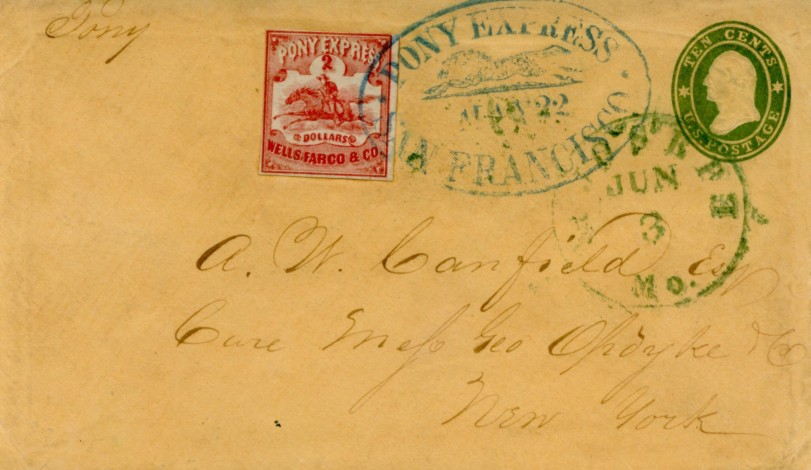 Pony
PONY EXPRESS
2
DOLLARS
WELLS, FARGO & CO.
PONY EXPRESS
22
SAN FRANCISCO
TEN CENTS
U.S. POSTAGE
JUN
3
Mo.
A. W. Canfield Esq
Care Mess Geo Opdyke & Co
New York